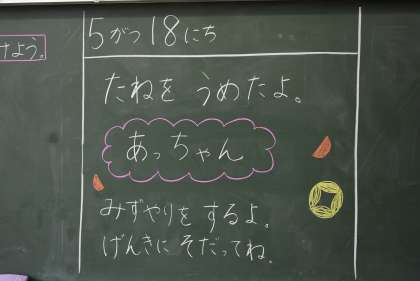 けよう。
5がつ18にち
たねを うめたよ。
あっちゃん
みずやりを するよ。
げんきに そだってね。